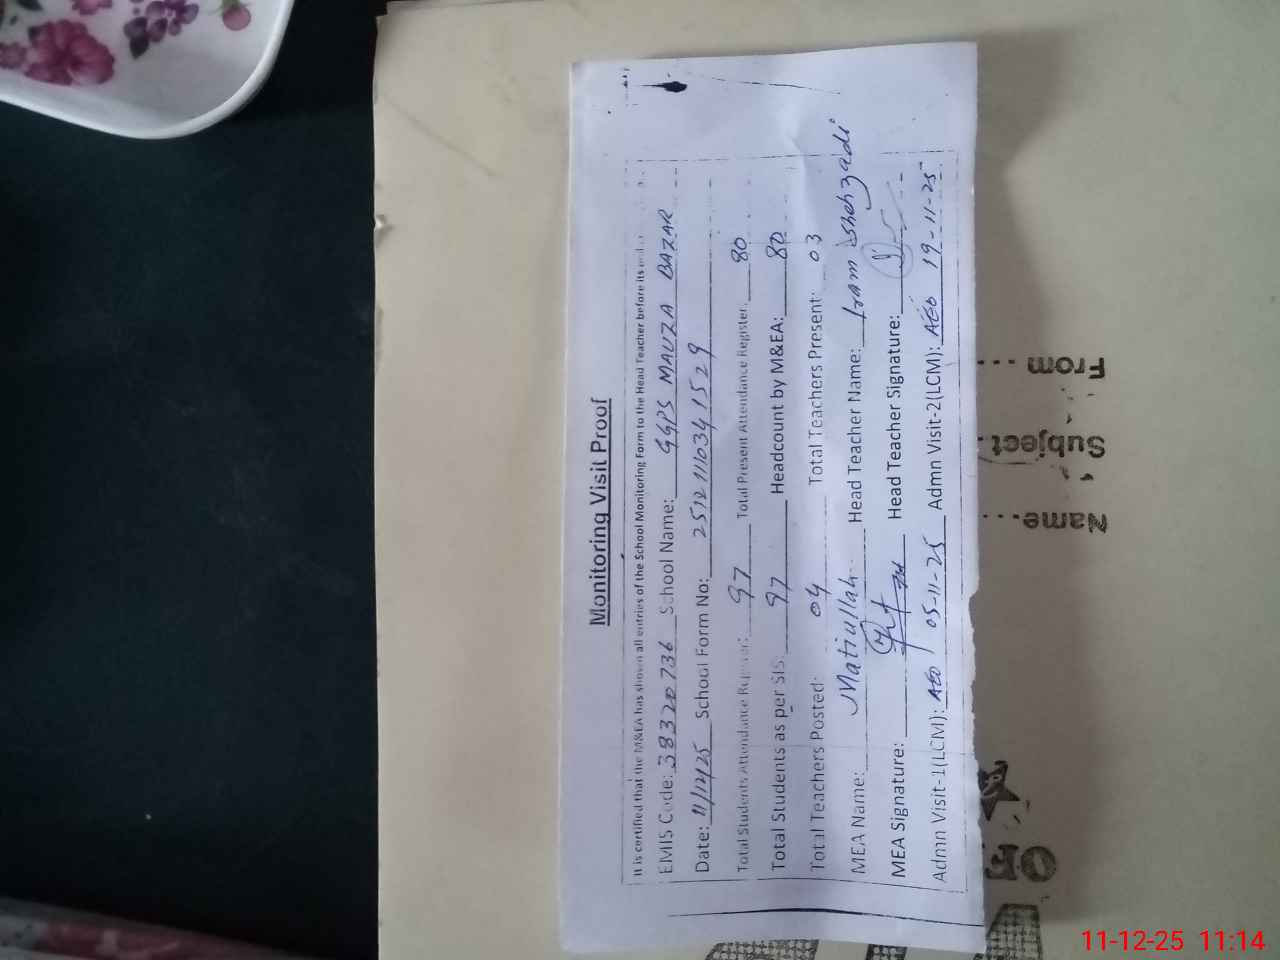 Monitoring Visit Proof
It is certified that the M&EA has shown all entries of the School Monitoring Form to the Head Teacher before its
EMIS Code: 38320736 School Name: GGPS MAUZA BAZAR
Date: 11/12/25 School Form No: 2512111034 1529
Total Students Attendance Register: 97 Total Present Attendance Register: 80
Total Students as per SIS: 97 Headcount by M&EA: 80
Total Teachers Posted: 04 Total Teachers Present: 03
MEA Name: Matiullah Head Teacher Name: Iram Shehzadi
MEA Signature: Head Teacher Signature:
Admn Visit-1(LCM): AEO 05-11-25 Admn Visit-2(LCM): AEO 19-11-25
Name...
Subject
From ...
OF
11-12-25 11:14